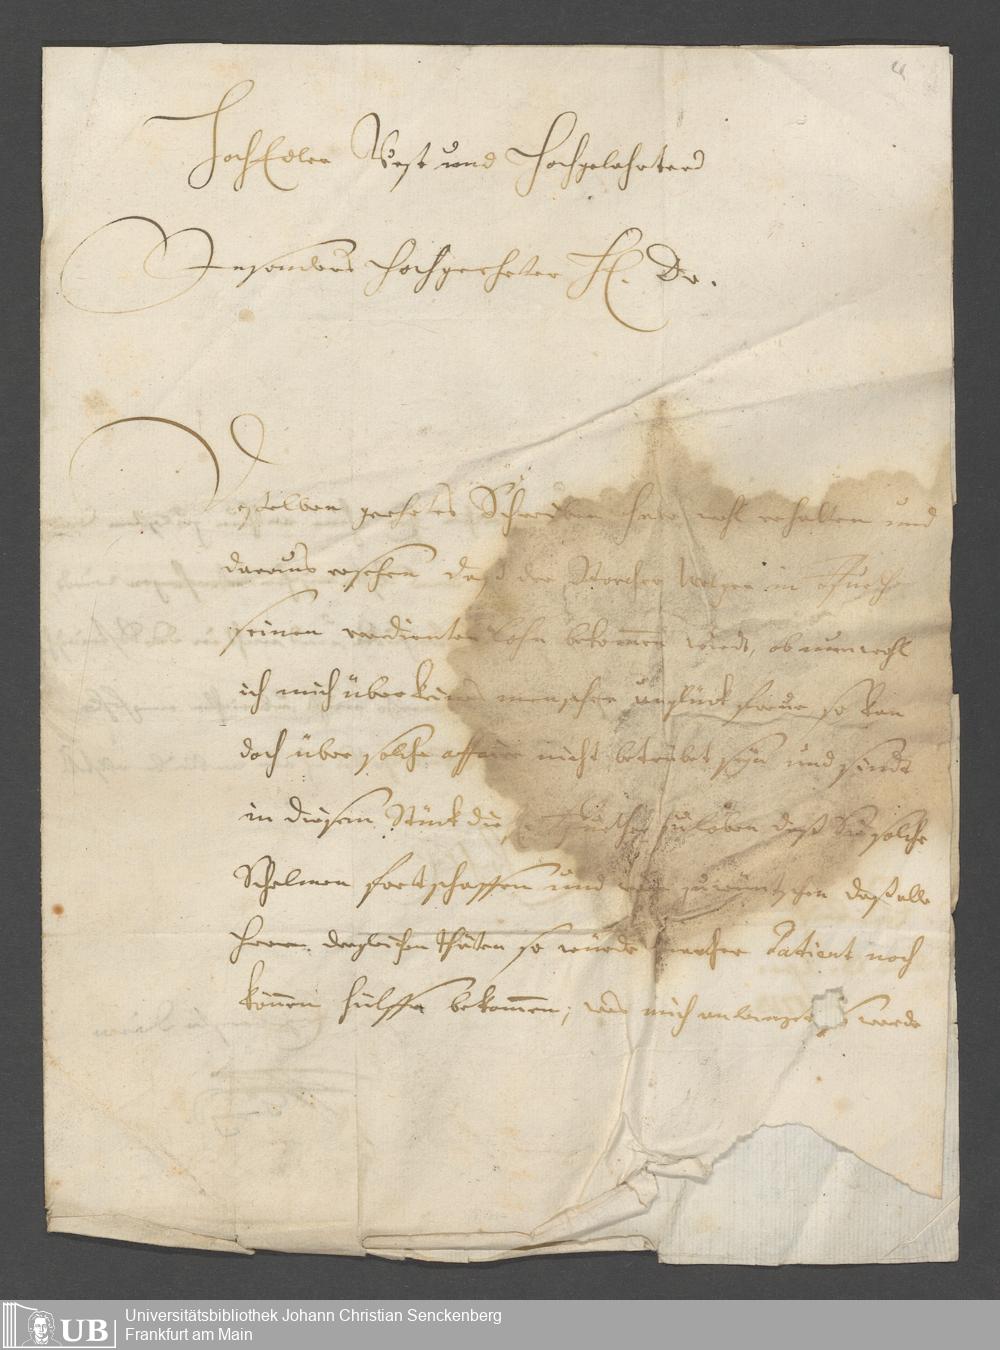 HochEdler Vest und Hochgelahrter
Besonders Hochgeehrter H. Dr.
Deßelben geehrtes Schreiben habe wohl erhalten und
daraus ersehen daß der Storcher Welzer in
seinen verdienten Lohn bekommen wirdt, ob nun wohl
ich mich über keines menschen unglück freue so kan
doch über solche affaire nicht betrübet seyn und sindt
in diesem Stück die zu loben daß Sie solche
Schelmen fortschaffen und wäre zu wünschen daß alle
Herrn dergleichen thäten so würde mancher Patient noch
können hülffe bekommen; was mich anlanget so werde
4
UB
Universitätsbibliothek Johann Christian Senckenberg
Frankfurt am Main